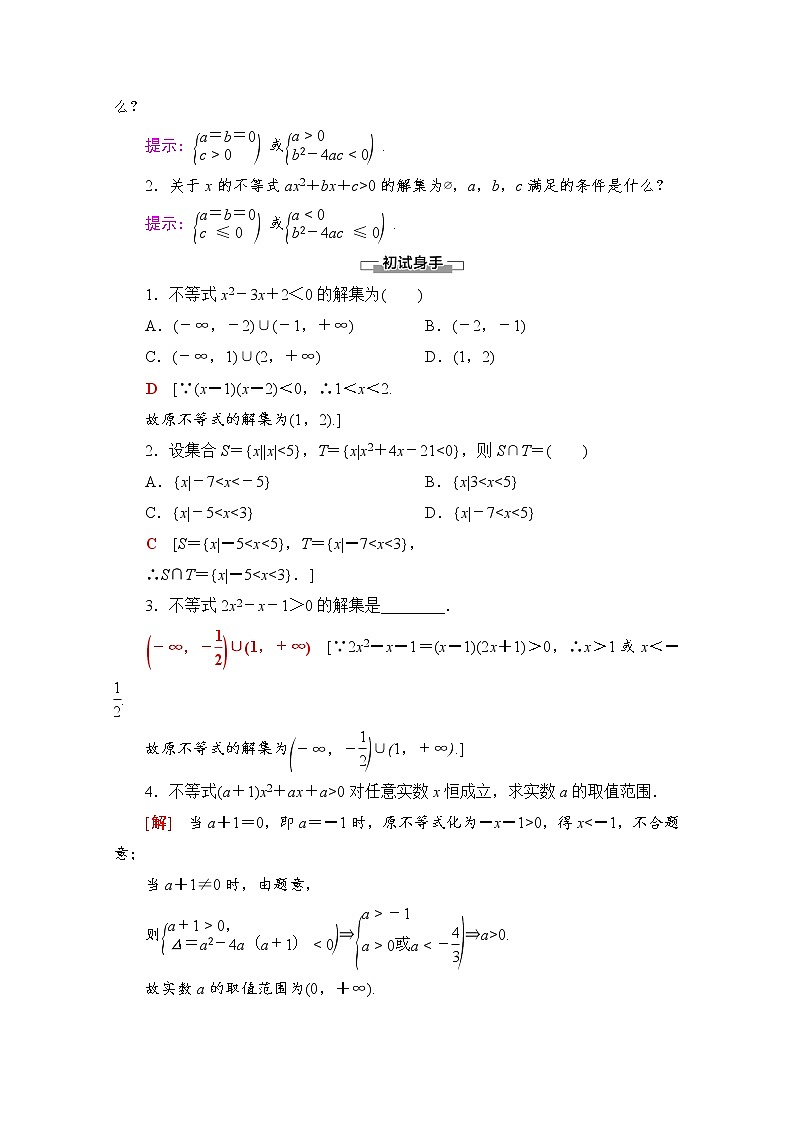 么？
提示：{a＝b＝0 c＞0 或{a＞0 b²－4ac＜0 ．
2．关于x的不等式ax²＋bx＋c>0的解集为∅，a，b，c满足的条件是什么？
提示：{a＝b＝0 c ≤0 或{a＜0 b²－4ac ≤0 ．
初试身手
1．不等式x²－3x＋2＜0的解集为(　　)
A．(－∞，－2)∪(－1，＋∞)　　B．(－2，－1)
C．(－∞，1)∪(2，＋∞)　　D．(1，2)
D　[∵(x－1)(x－2)＜0，∴1＜x＜2.
故原不等式的解集为(1，2).]
2．设集合S＝{x||x|<5}，T＝{x|x²＋4x－21<0}，则S∩T＝(　　)
A．{x|－7<x<－5}　　B．{x|3<x<5}
C．{x|－5<x<3}　　D．{x|－7<x<5}
C　[S＝{x|－5<x<5}，T＝{x|－7<x<3}，
∴S∩T＝{x|－5<x<3}．]
3．不等式2x²－x－1＞0的解集是________．
(－∞，－1/2)∪(1，＋∞)　[∵2x²－x－1＝(x－1)(2x＋1)＞0，∴x＞1或x＜－
1/2.
故原不等式的解集为(－∞，－1/2)∪(1，＋∞).]
4．不等式(a＋1)x²＋ax＋a>0对任意实数x恒成立，求实数a的取值范围．
[解]　当a＋1＝0，即a＝－1时，原不等式化为－x－1>0，得x<－1，不合题
意；
当a＋1≠0时，由题意，
则{a＋1＞0， Δ＝a²－4a（a＋1）＜0⇒{a＞－1 a＞0或a＜－4/3⇒a>0.
故实数a的取值范围为(0，＋∞).